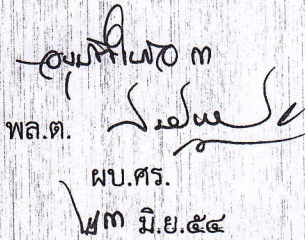 อนุมัติในข้อ ๓
พล.ต.
ผบ.ศร.
๒๓ มิ.ย.๕๔